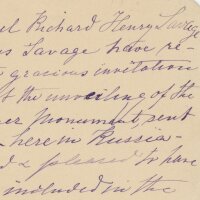 el Richard Henry Savage
s Savage have re-
gracious invitation
t the unveiling of the
er Monument, sent
here in Russia-
d & pleased to have
included in the